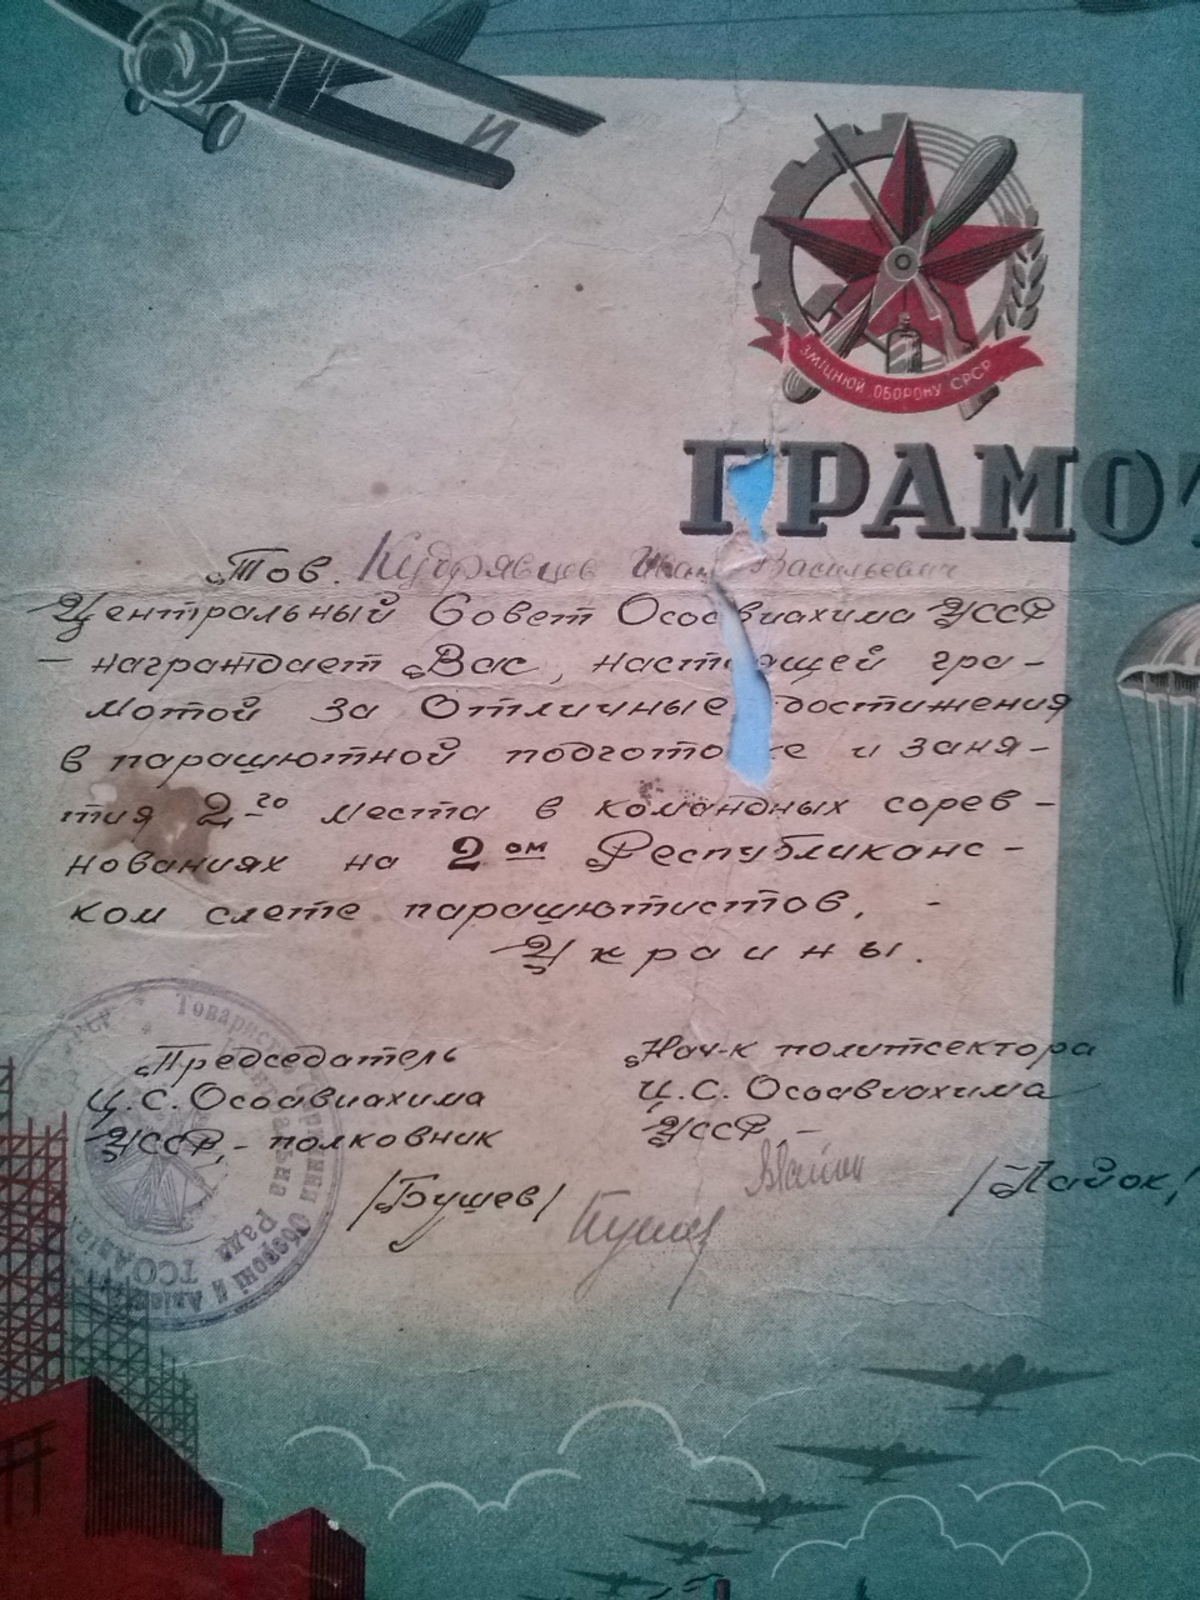 ЗМІЦНЮЙ ОБОРОНУ СРСР
ГРАМОТ
Тов. Кудрявцев Иван Васильевич
Центральный Совет Осоавиахима УССР
— награждает Вас, настоящей гра-
мотой за Отличные достижения
в парашютной подготовке и заня-
тия 2-го места в командных сорев-
нованиях на 2ом Республиканс-
ком слете парашютистов, -
Украины.
Председатель
Ц.С. Осоавиахима
УССР,- полковник
/Бушев/
Нач-к политсектора
Ц.С. Осоавиахима
УССР —
/Пайок/
Товарис Оборони й Авіа
Рада
ТСО